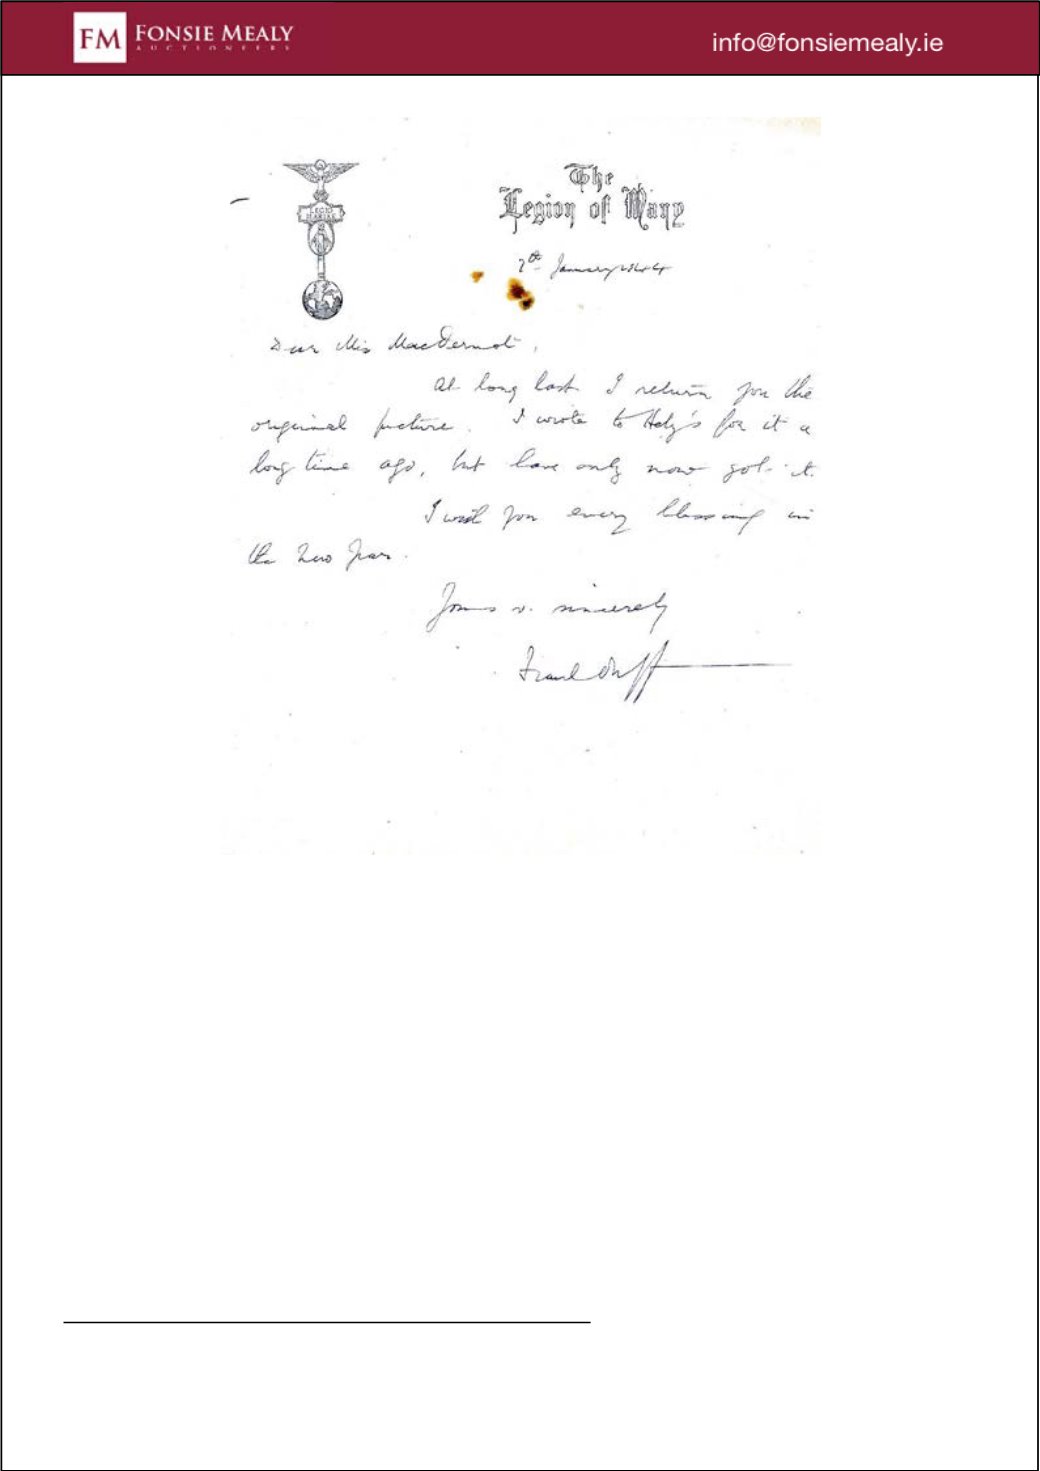 FM FONSIE MEALY
AUCTIONEERS
info@fonsiemealy.ie
LEGIO
MARIAE
The
Legion of Mary
7th January 1944
Dear Miss MacDermot,
At long last I return you the
original picture. I wrote to Hely's for it a
long time ago, but have only now got it.
I wish you every blessing in
the New Year.
Yours v. sincerely
Frank Duff